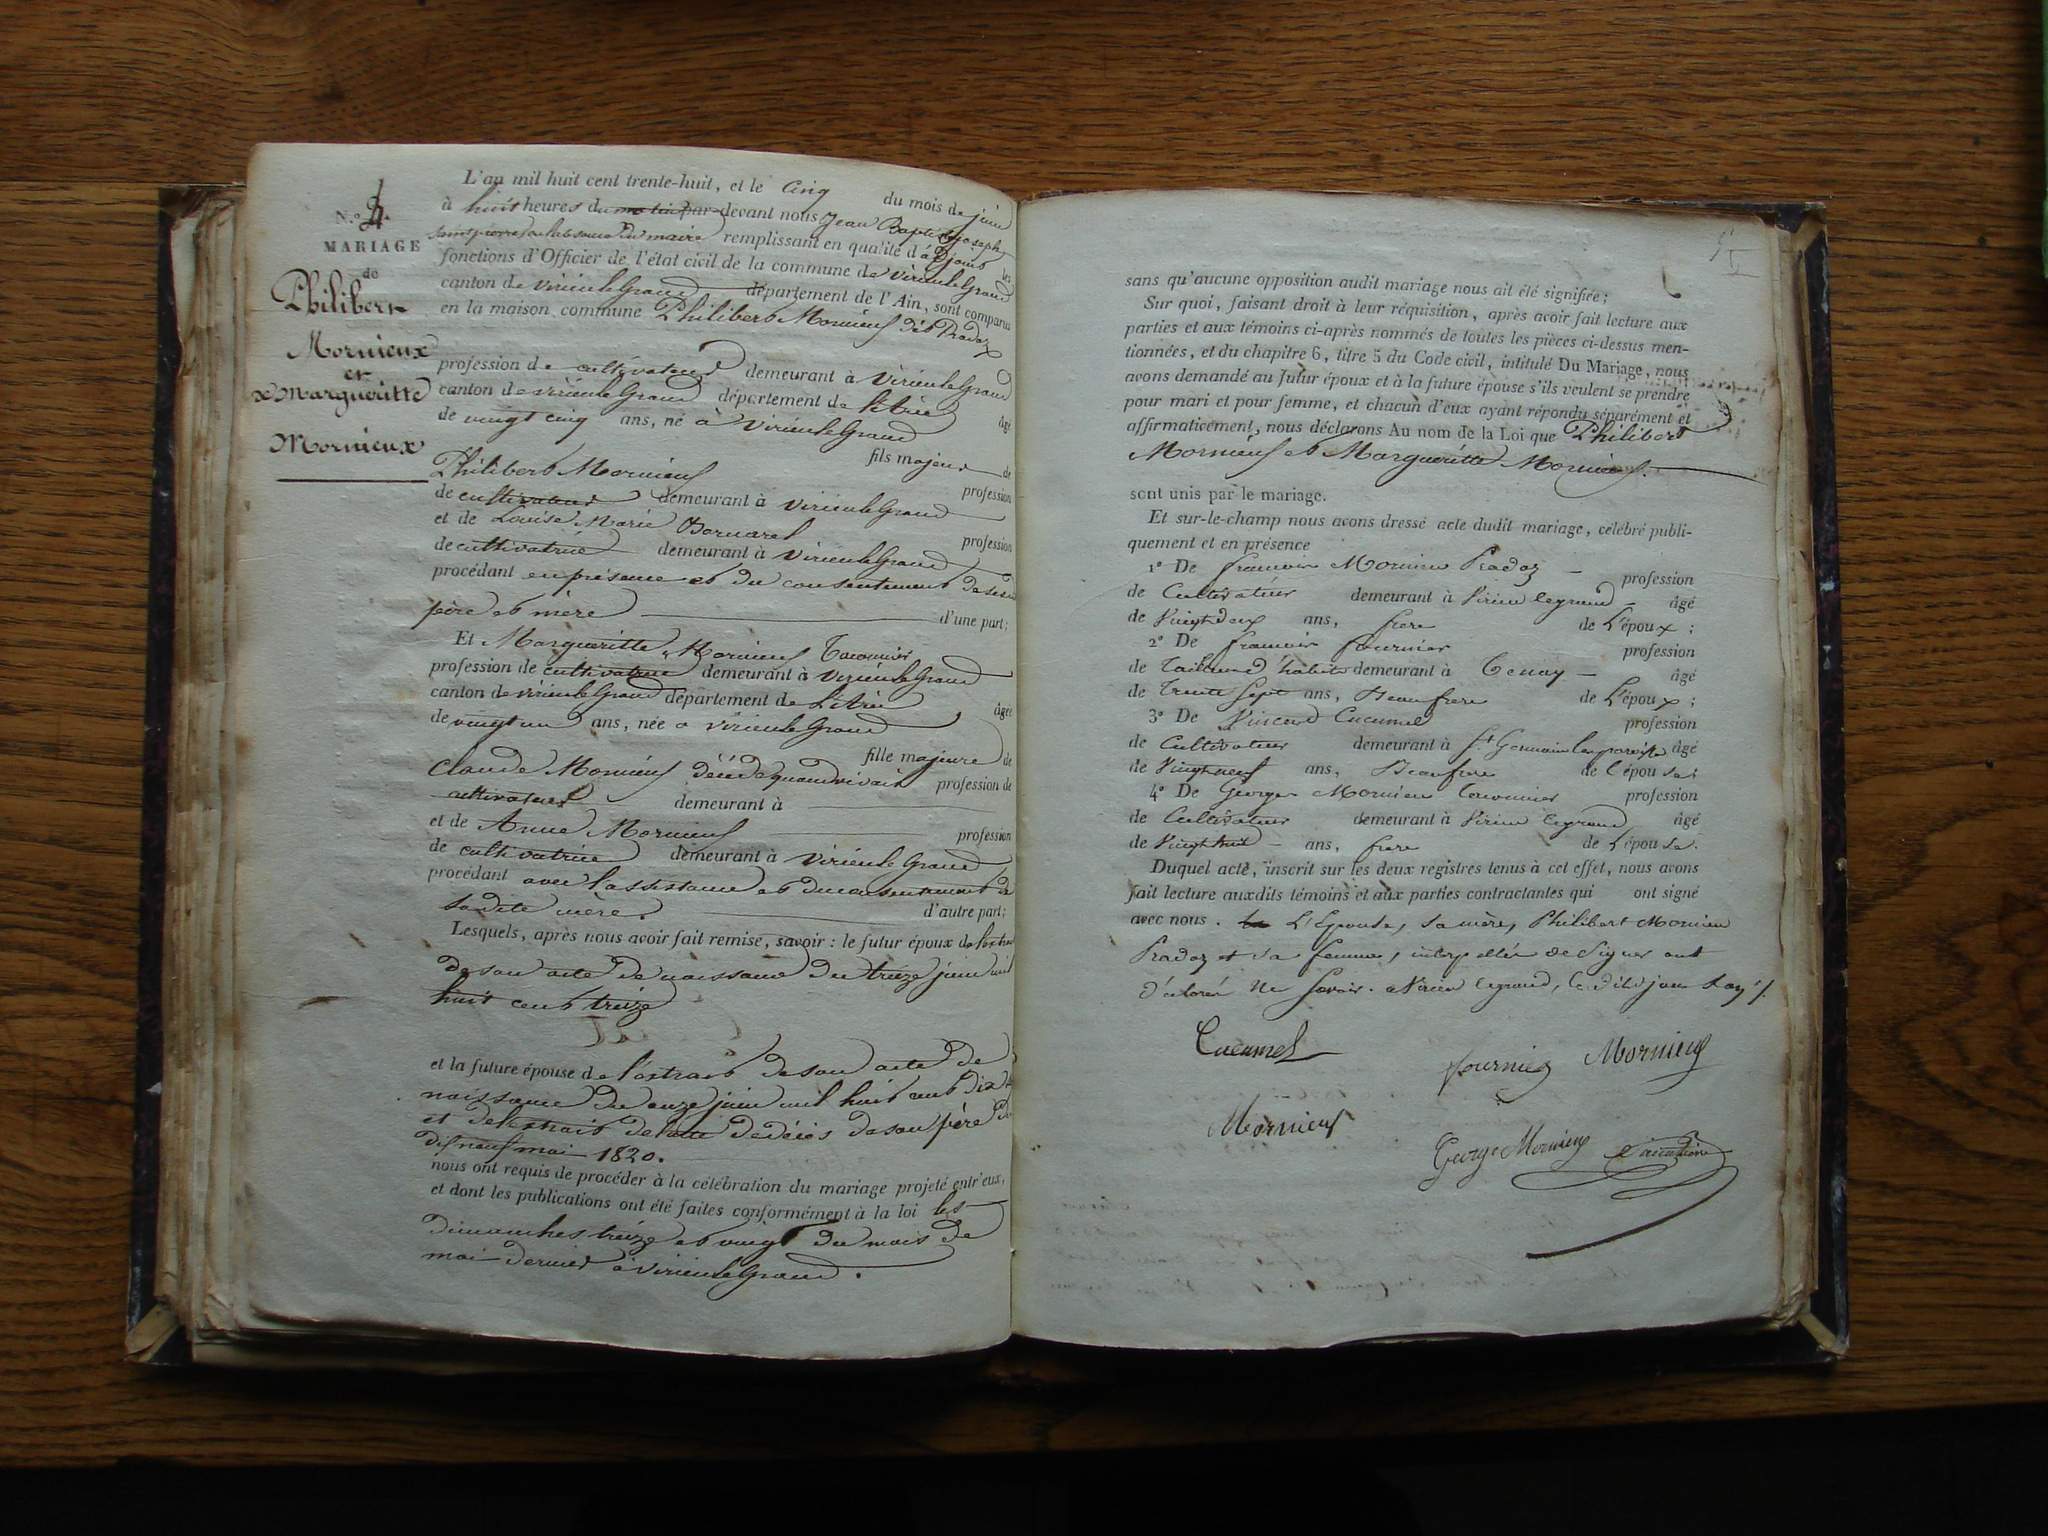 N.º 4.
MARIAGE
de
Philibert
Mornieux
et
Margueritte
Mornieux
L'an mil huit cent trente-huit, et le Cinq du mois de juin
à huit heures du matin par-devant nous Jean Baptiste joseph
maire remplissant en qualité d'adjoint les
fonctions d'Officier de l'état civil de la commune de virieu le Grand
canton de virieu le Grand département de l'Ain, sont comparus
en la maison commune Philibert Mornieux dit Pradoz
profession de cultivateur demeurant à virieu le Grand
canton de virieu le Grand département de l'Ain âgé
de vingt cinq ans, né à virieu le Grand
fils majeur de
Philibert Mornieux profession
de cultivateur demeurant à virieu le Grand
et de Louise Marie Bornarel profession
de cultivatrice demeurant à virieu le Grand
procédant en présence et du consentement de ses
père et mère d'une part;
Et Margueritte Mornieux
profession de cultivatrice demeurant à virieu le Grand
canton de virieu le Grand département de l'Ain âgée
de vingt un ans, née à virieu le Grand
fille majeure de
Claude Mornieux décédé quand vivait profession de
cultivateur demeurant à
et de Anne Mornieux profession
de cultivatrice demeurant à virieu le Grand
procédant avec l'assistance et du consentement de
sa dite mère. d'autre part;
Lesquels, après nous avoir fait remise, savoir: le futur époux de l'extrait
de son acte de naissance du treize juin mil
huit cent treize
et la future épouse de l'extrait de son acte de
naissance du onze juin mil huit cent dix
et de l'extrait de l'acte de décès de son père du
dix neuf mai 1820.
nous ont requis de procéder à la célébration du mariage projeté entr'eux,
et dont les publications ont été faites conformément à la loi les
dimanches treize et vingt du mois de
mai dernier à virieu le Grand.
5
sans qu'aucune opposition audit mariage nous ait été signifiée;
Sur quoi, faisant droit à leur réquisition, après avoir fait lecture aux
parties et aux témoins ci-après nommés de toutes les pièces ci-dessus men-
tionnées, et du chapitre 6, titre 5 du Code civil, intitulé Du Mariage, nous
avons demandé au futur époux et à la future épouse s'ils veulent se prendre
pour mari et pour femme, et chacun d'eux ayant répondu séparément et
affirmativement, nous déclarons Au nom de la Loi que Philibert
Mornieux et Margueritte Mornieux.
sont unis par le mariage.
Et sur-le-champ nous avons dressé acte dudit mariage, célébré publi-
quement et en présence
1º De francois Mornieu Pradoz profession
de Cultivateur demeurant à Virieu le grand âgé
de Vingt deux ans, frere de L'époux;
2º De francois fournier profession
de Tailleur d'habits demeurant à Tenay âgé
de Trente Sept ans, Beaufrere de L'époux;
3º De Vincend Cucumel profession
de Cultivateur demeurant à St Germain les paroisse âgé
de Vingt neuf ans, Beaufrere de l'épouse;
4º De George Mornieu profession
de Cultivateur demeurant à Virieu le grand âgé
de Vingt huit ans, frere de L'épouse.
Duquel acte, inscrit sur les deux registres tenus à cet effet, nous avons
fait lecture auxdits témoins et aux parties contractantes qui ont signé
avec nous. L'Epouse, sa mère, Philibert Mornieu
Pradoz et sa femme, interpellés de signer ont
déclaré ne savoir. à Virieu le grand, le dit jour
Cucumel
fournier Mornieux
Mornieux
George Mornieux